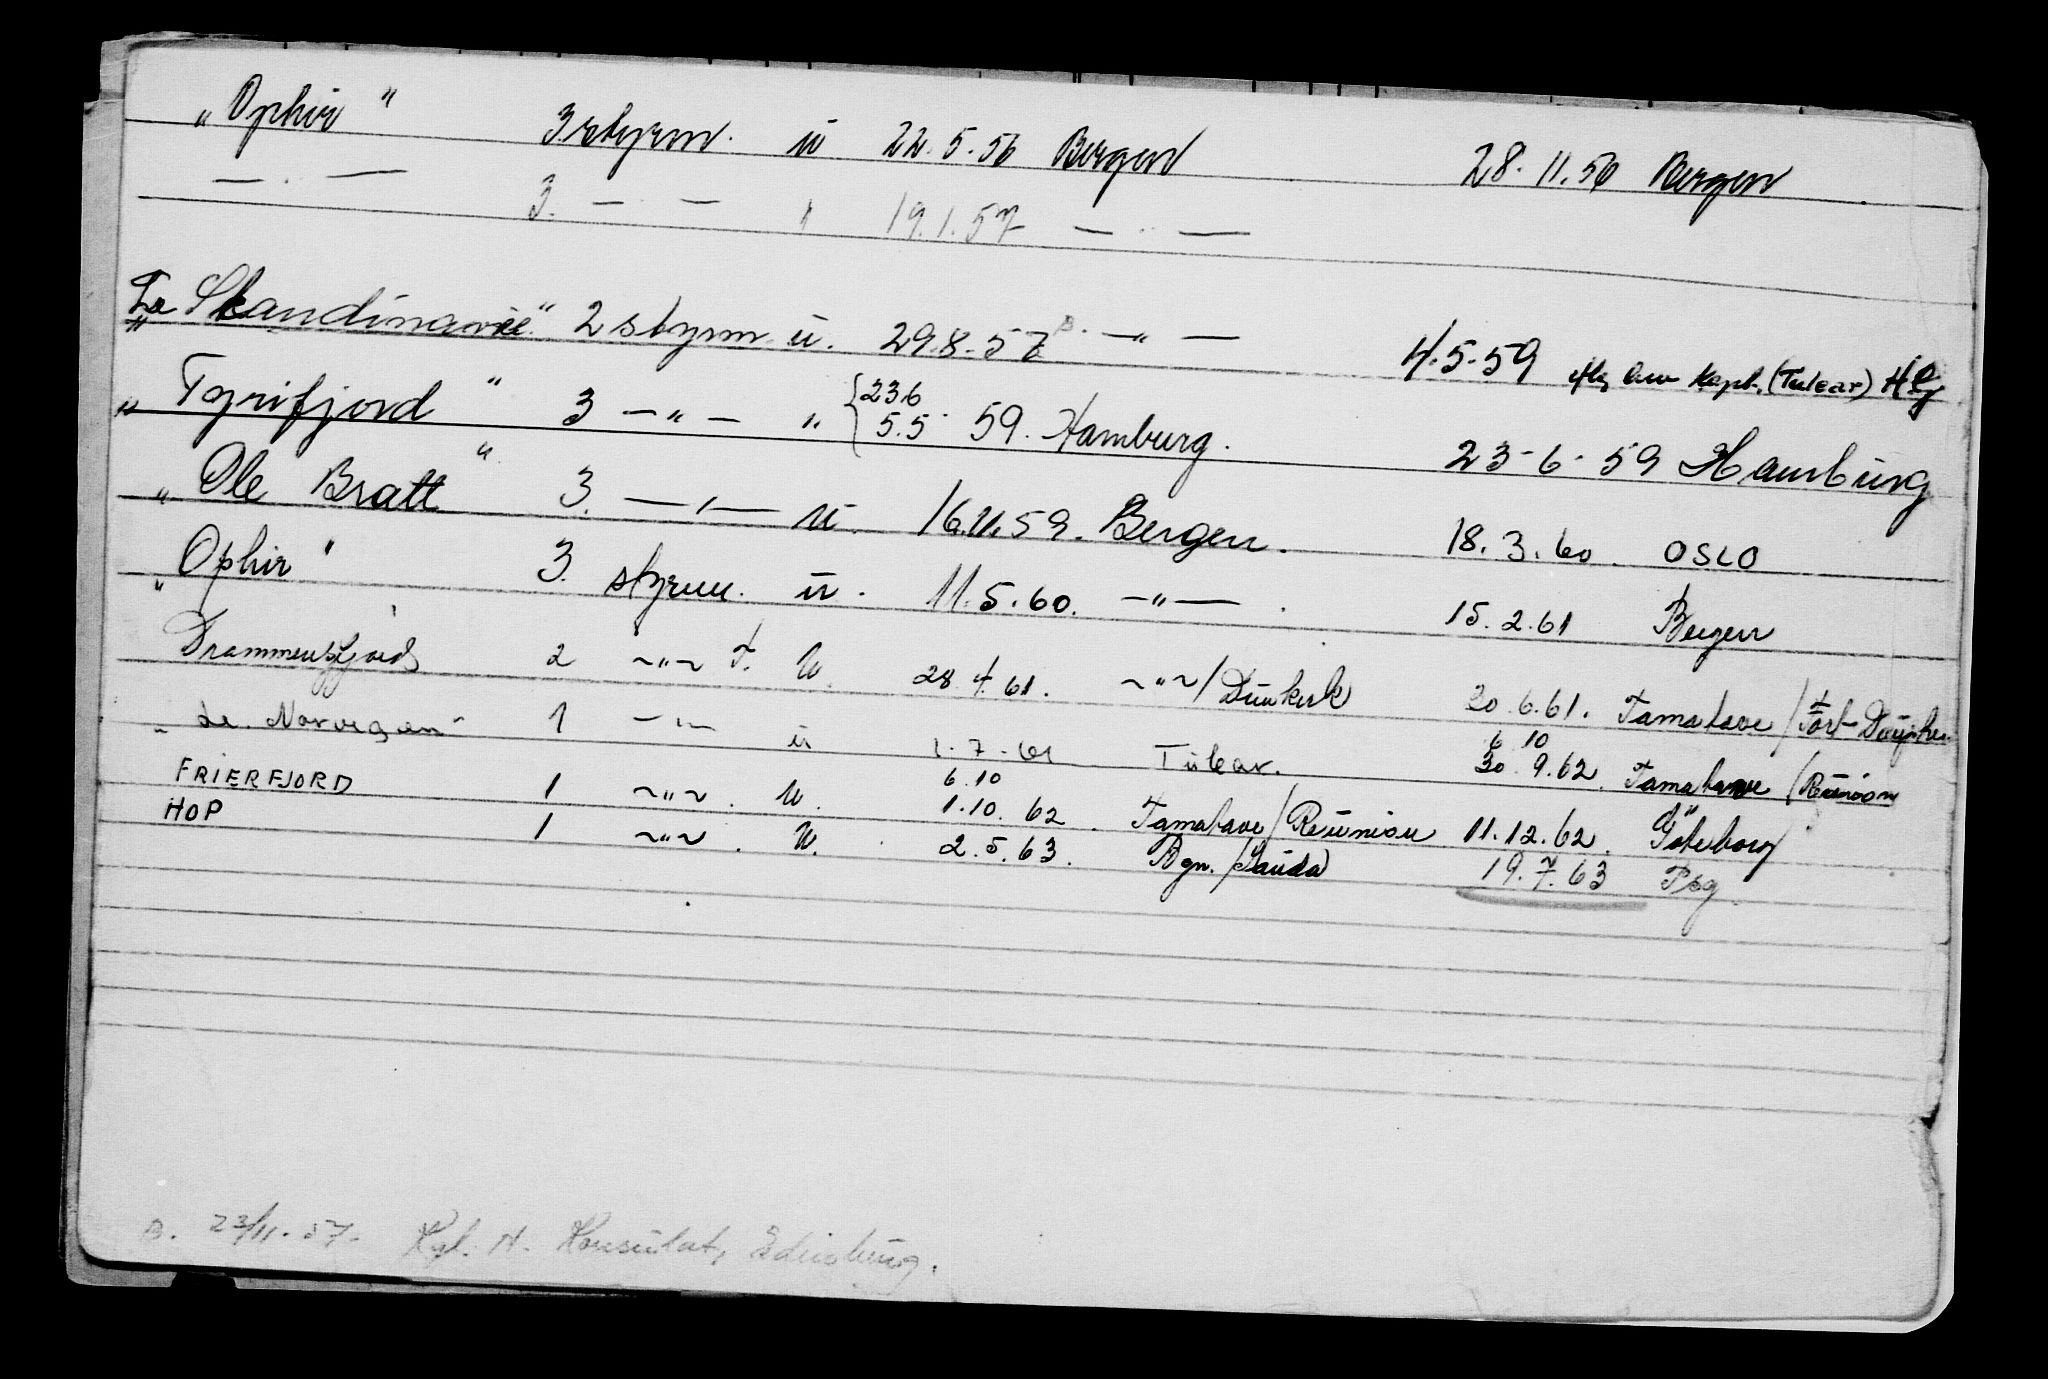 „Ophir" 3 styrm. u 22.5.56 Bergen 28.11.56 Bergen
— . — 3. — . — " 19.1.57 — .. —
„La Skandinavie" 2 styrm u. 29.8.57 B. — " — 4.5.59 Hbg (Tulear) Hbg
„ Tyrifjord " 3 — " — " { 23.6 5.5 59. Hamburg. 23-6-59 Hamburg
„ Ole Bratt " 3. — " — u. 16.11.59. Bergen. 18.3.60. OSLO
„ Ophir " 3. styrm. u. 11.5.60. — " — . 15.2.61 Bergen
Drammensfjord 2 ~ " ~ F. U. 28.4.61. ~ " ~ / Dunkerk 30.6.61. Tamatave / Fort-Dauphin
„ Le. Norvegien " 1 — " — u 1.7.61 Tulear. 6 10 30.9.62. Tamatave / Reunion
FRIERFJORD 1 ~ " ~. U. 6.10 1.10.62. Tamatave / Reunion 11.12.62. Göteborg
HOP 1 ~ " ~. U. 2.5.63. Bgn. / Sauda 19.7.63 Psg.
B. 23/11.57. Kgl. N. Konsulat, Edinburg.